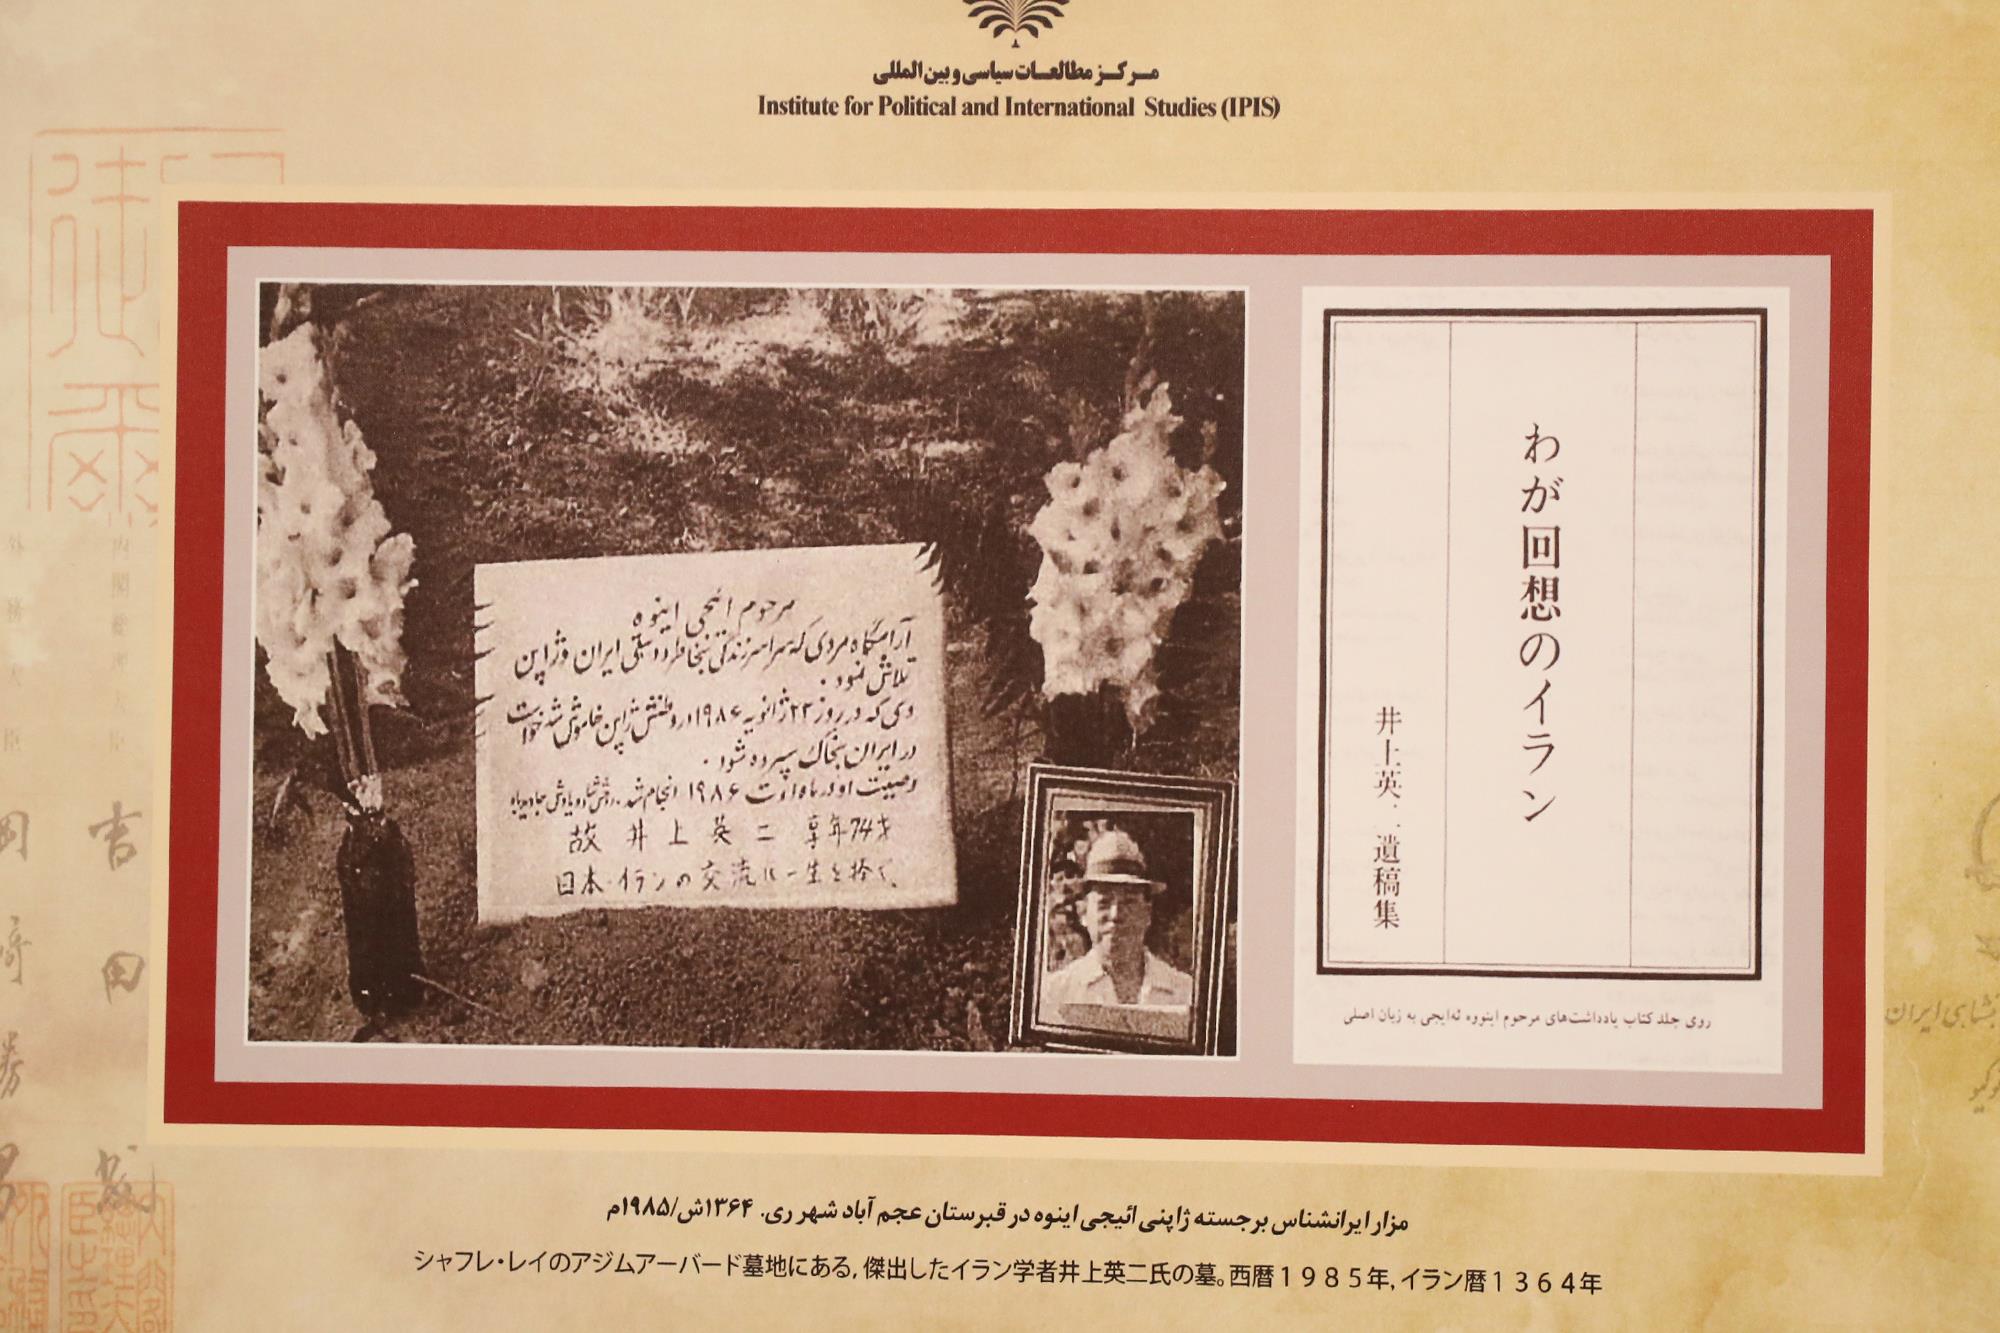 مرکز مطالعات سیاسی و بین المللی
Institute for Political and International Studies (IPIS)
مرحوم ائیجی اینوه
آرامگاه مردی که سراسر زندگی بخاطر دوستی ایران و ژاپن
تلاش نمود.
وی که در روز ۲۳ ژانویه ۱۹۸۶ در وطنش ژاپن خاموش شد خواست
در ایران بخاک سپرده شود.
وصیت او در ماه اوت ۱۹۸۶ انجام شد. روانش شاد و یادش جاوید باد
故 井 上 英 二 享年74才
日本・イランの交流に一生を捨てく
わが回想のイラン
井上英二遺稿集
روی جلد کتاب یادداشت‌های مرحوم اینووه ئه‌ایجی به زبان اصلی
内閣総理大臣
吉田茂
外務大臣
岡崎勝男
مزار ایرانشناس برجسته ژاپنی ائیجی اینوه در قبرستان عجم آباد شهر ری. ۱۳۶۴ش/۱۹۸۵م
シャフレ・レイのアジムアーバード墓地にある, 傑出したイラン学者井上英二氏の墓。西暦1985年, イラン暦1364年